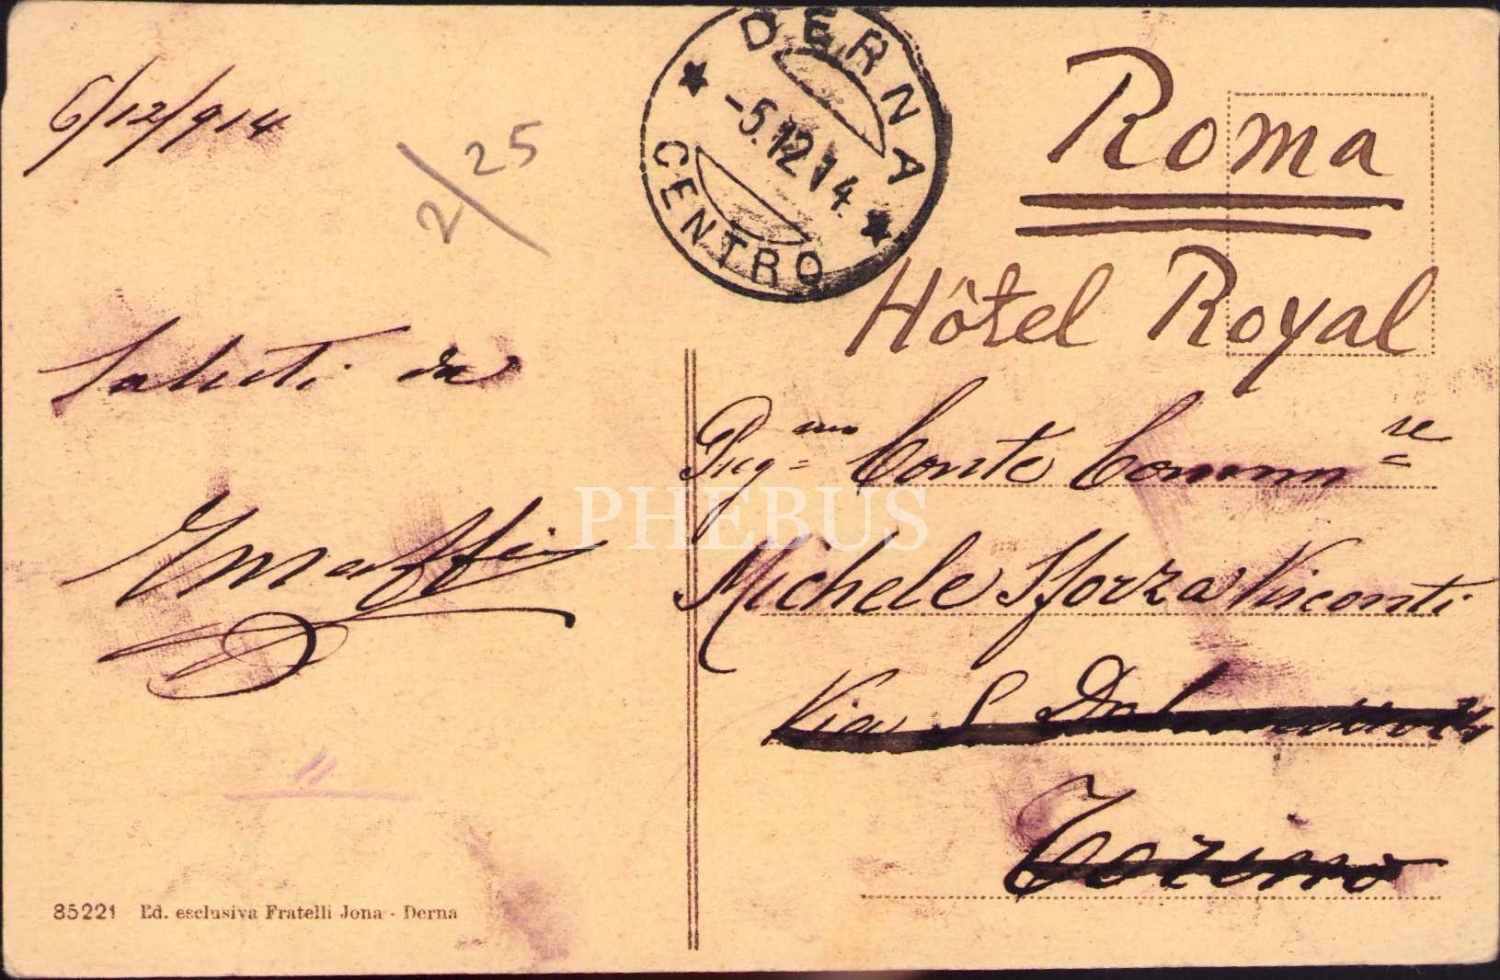 6/12/914
2/25
DERNA
-5.12.14.
CENTRO
Roma
Hôtel Royal
Saluti da
Pregmo Conte Commre
Michele Sforza Visconti
Via S. Dal
Torino
PHEBUS
85221 Ed. esclusiva Fratelli Jona - Derna